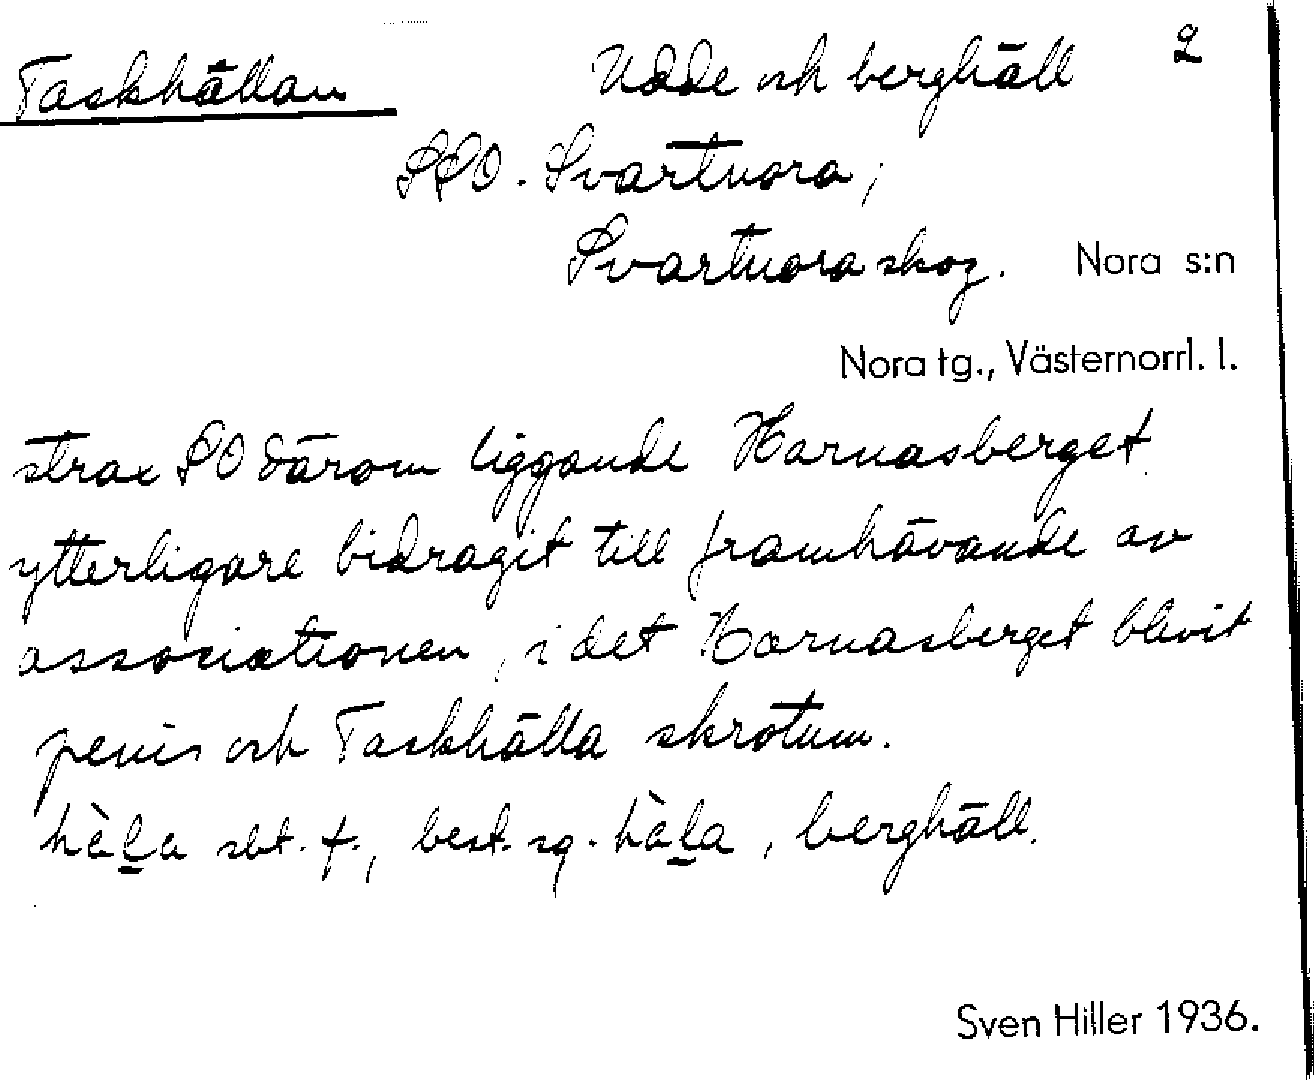 Taskhällan Udde och berghäll 2
SSO. Svartnora;
Svartnora skog. Nora s:n
Nora tg., Västernorrl. l.
strax SO därom liggande Harnasberget
ytterligare bidragit till framhävande av
associationen, i det Harnasberget blivit
penis och Taskhälla skrotum.
hàl̲a sbt. f., best. sg. hàl̲a, berghäll.
Sven Hiller 1936.